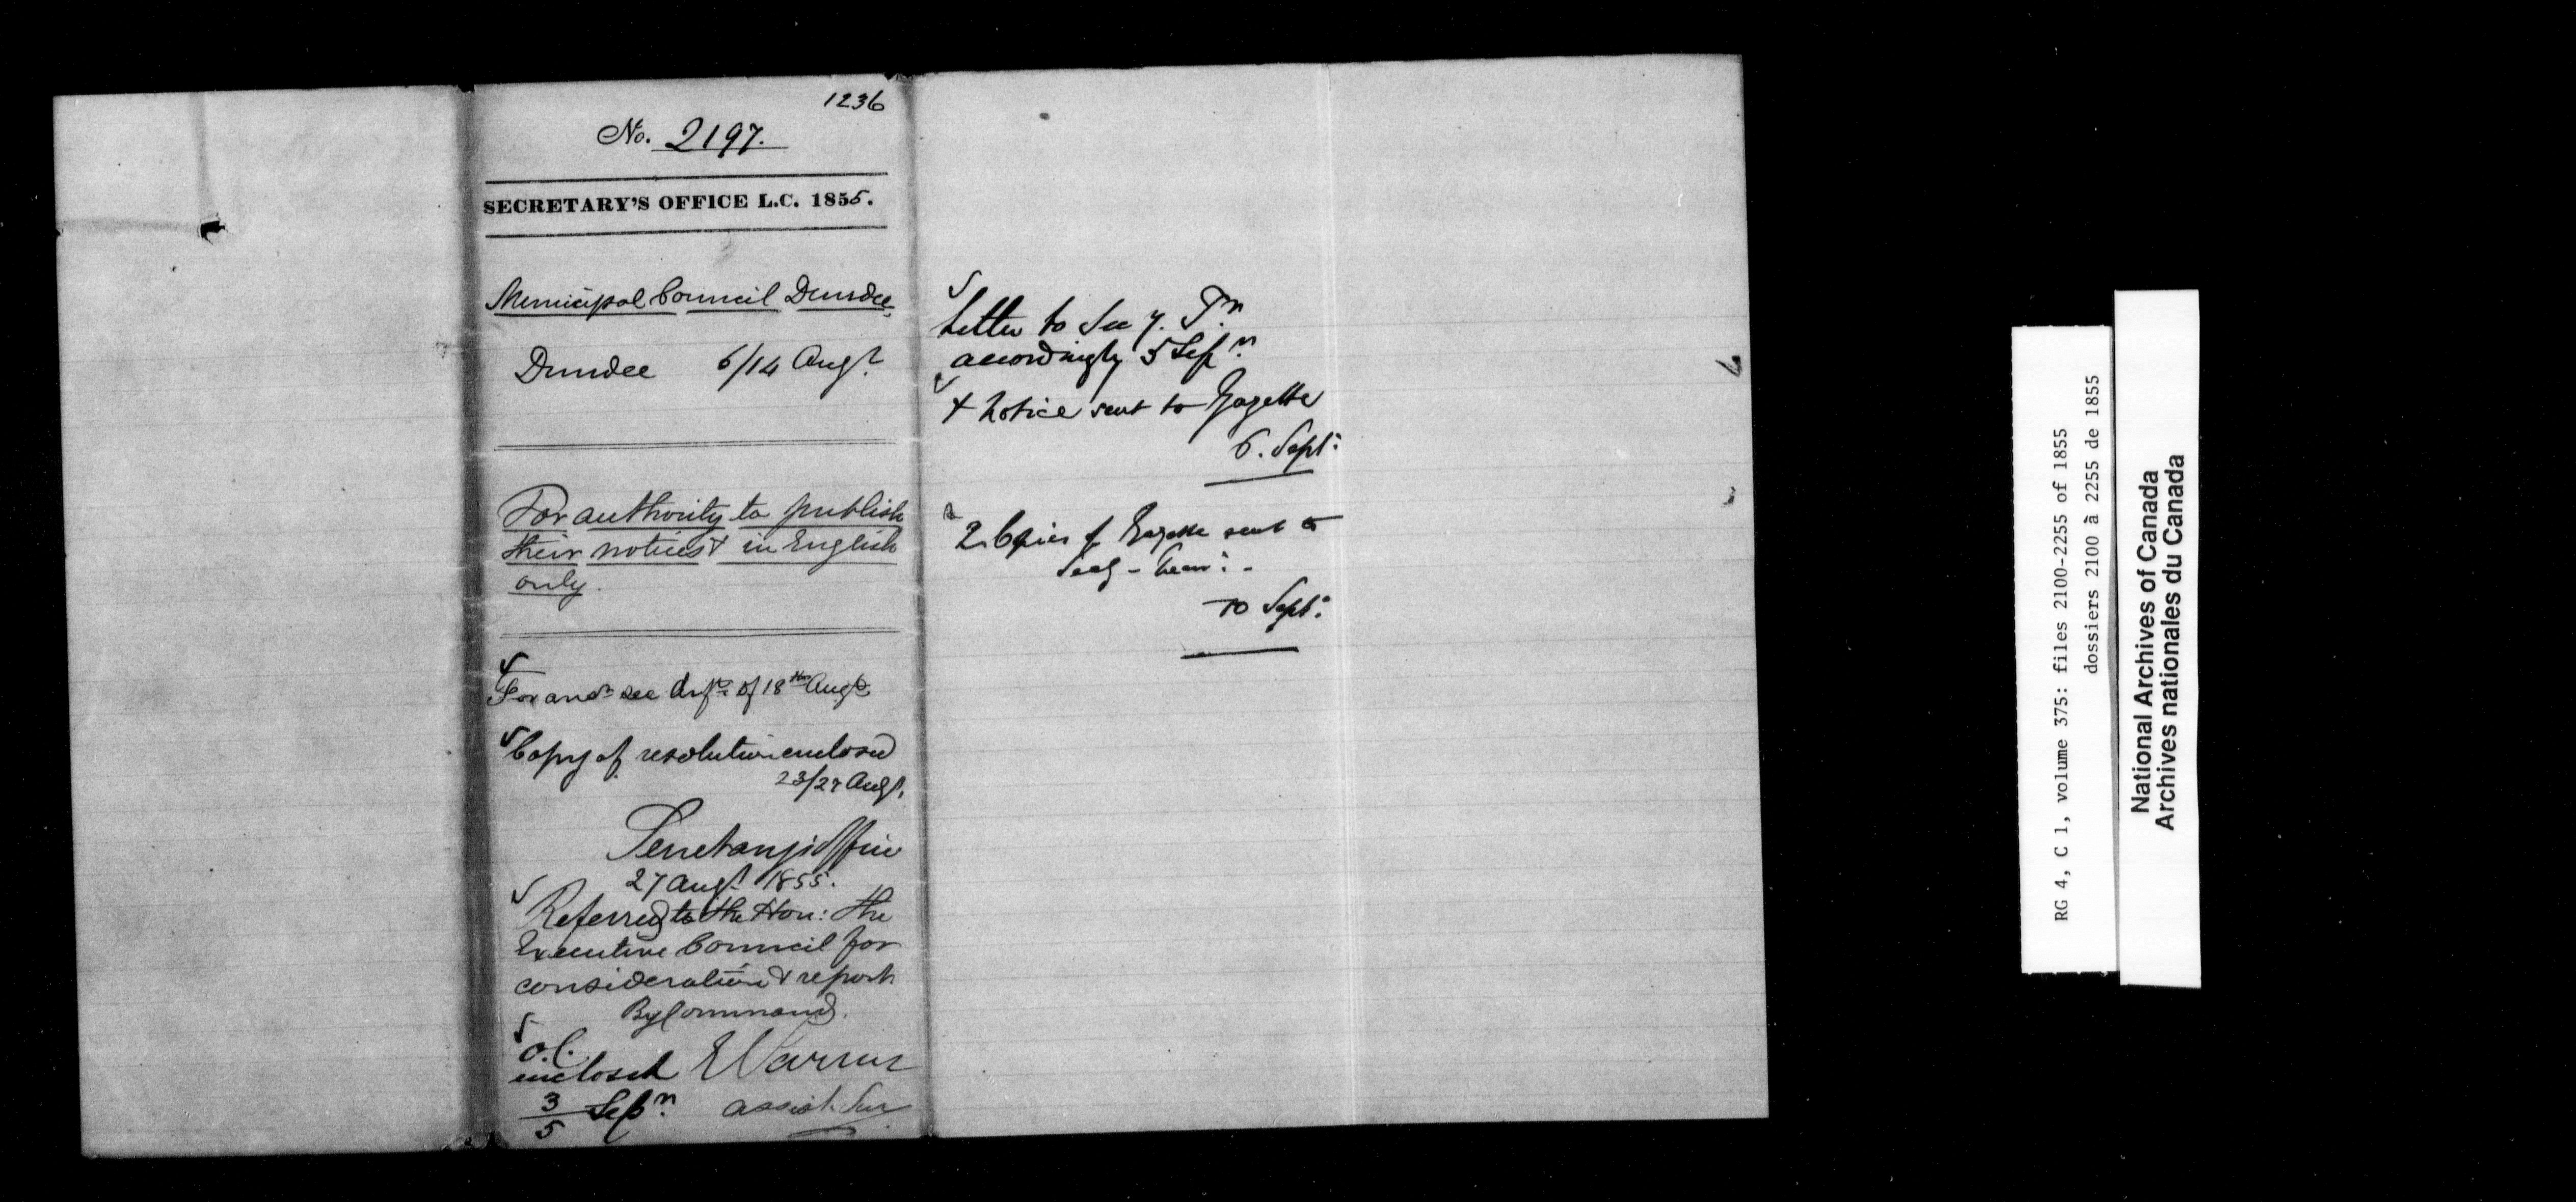 1236
No. 2197.
SECRETARY'S OFFICE L.C. 1855.
Municipal Council Dundee
Dundee 6/14 Augt
For authority to publish
their notices & in English
only.
For ansr see dupte of 18th Augt
Copy of resolution enclosed
23/27 Augt.
Secretary's Office
27 Augt 1855.
Referred to the Hon: the
Executive Council for
consideration & report
By Command.
O.C.
inclosed E Parent
3/5 Sepr. assist. Secy
Letter to Sec y. Tr.
accordingly 5 Sepr.
& Notice sent to Gazette
6. Sept:
2 Copies of Gazette sent to
Secy -
10 Sept:
RG 4, C 1, volume 375: files 2100-2255 of 1855
dossiers 2100 à 2255 de 1855
National Archives of Canada
Archives nationales du Canada